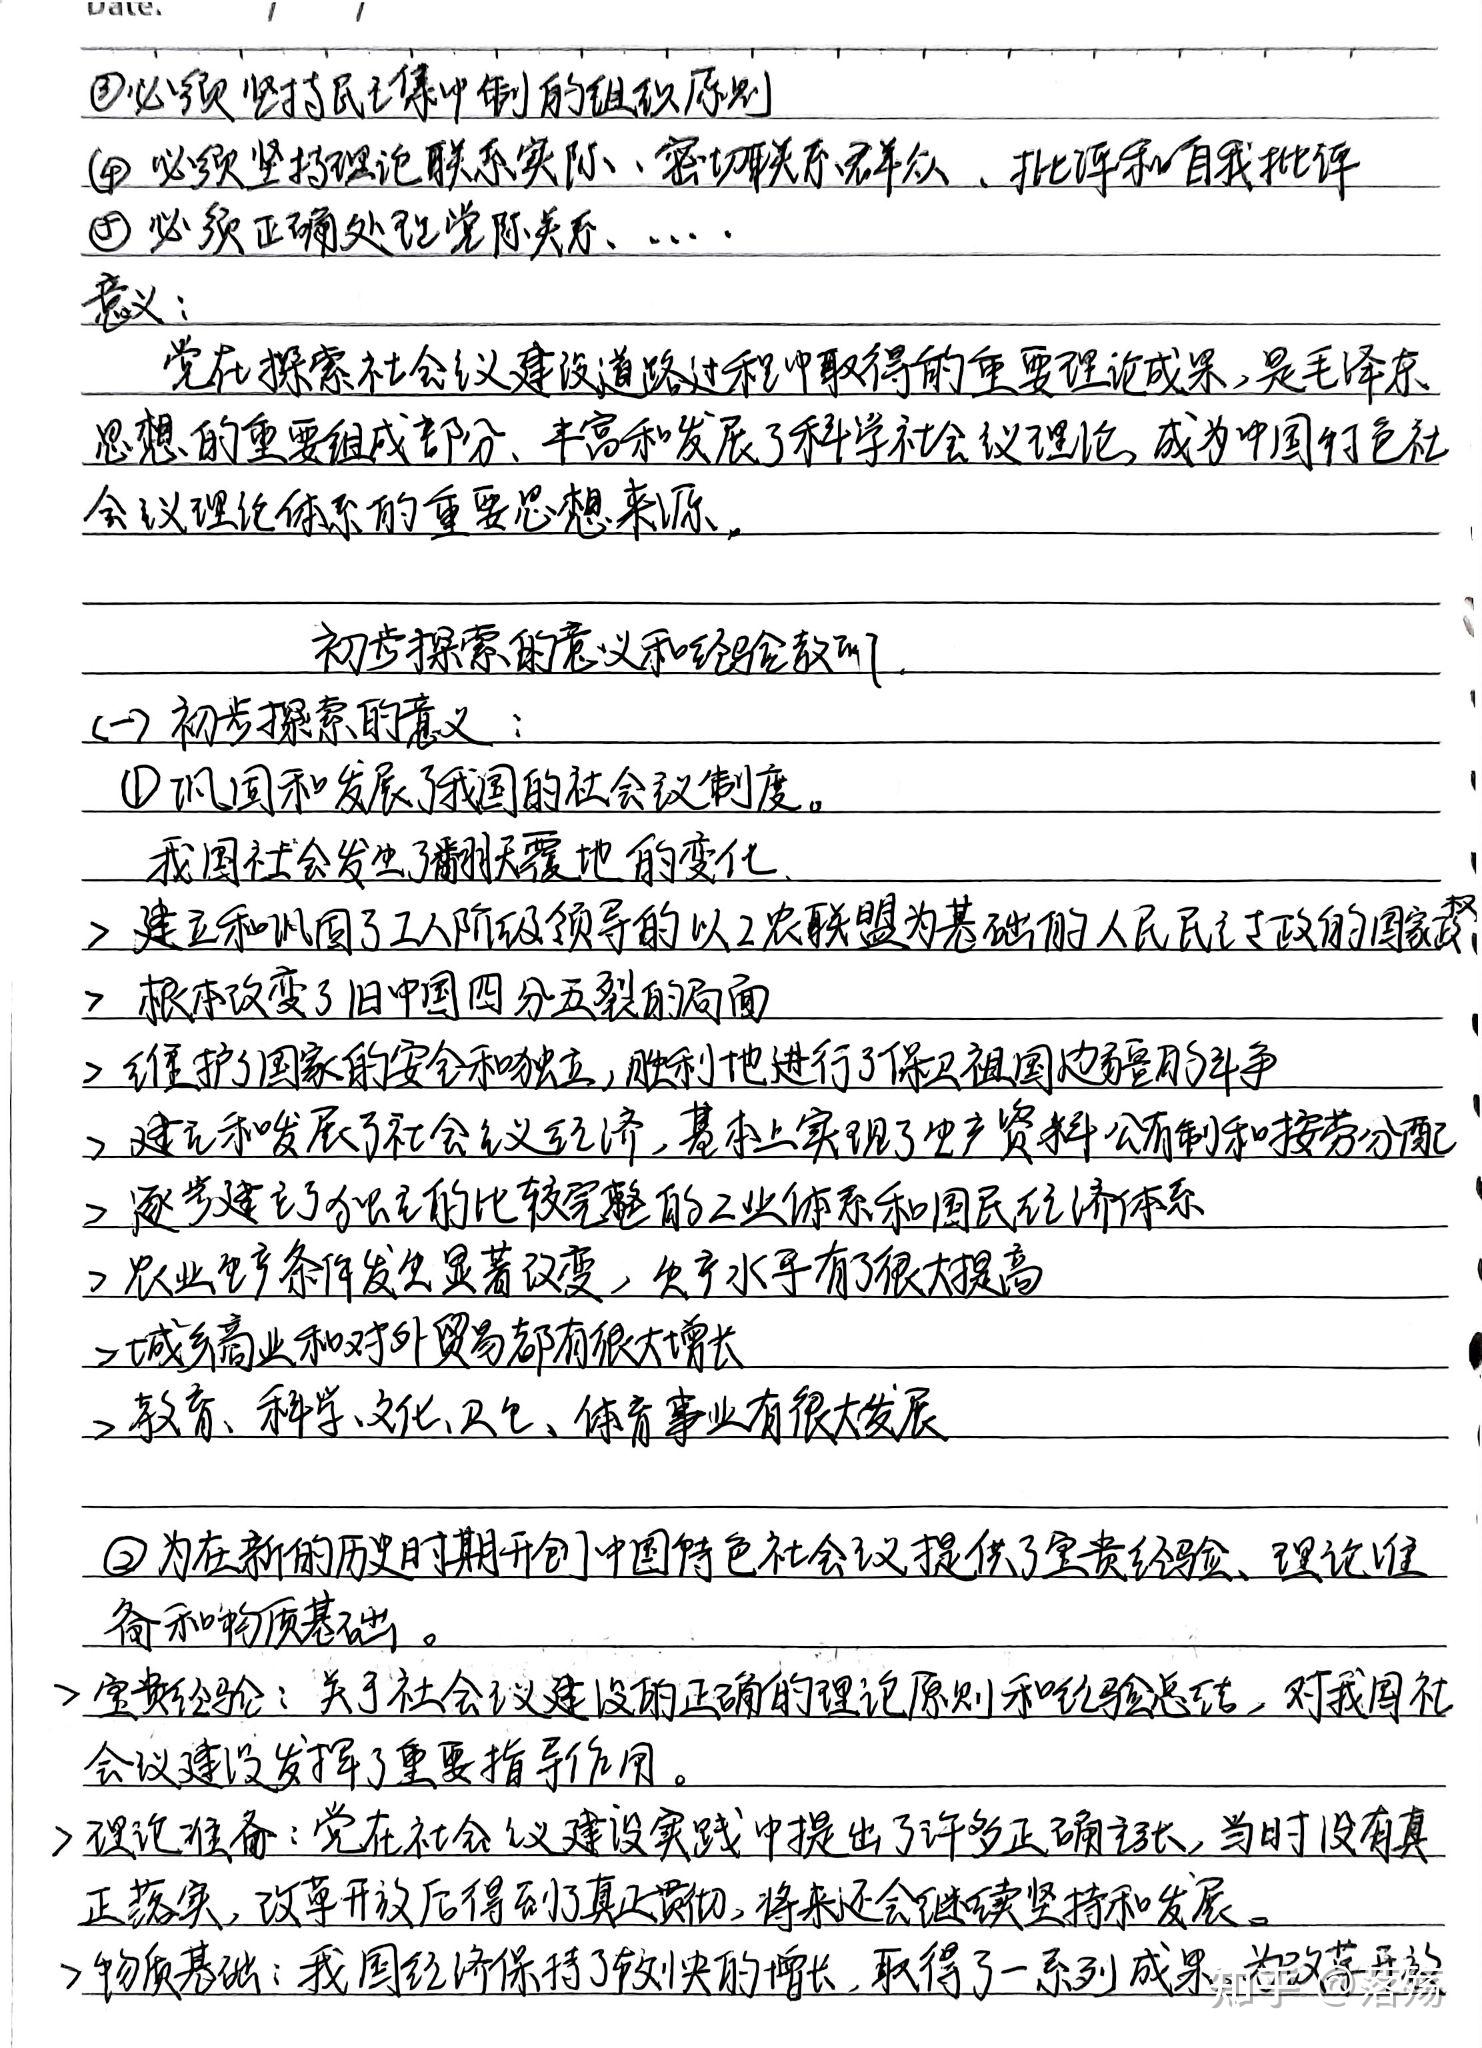 Date. / /
③必须坚持民主集中制的组织原则
④ 必须坚持理论联系实际、密切联系群众、批评和自我批评
⑤ 必须正确处理党际关系、……
意义：
党在探索社会主义建设道路过程中取得的重要理论成果，是毛泽东
思想的重要组成部分、丰富和发展了科学社会主义理论，成为中国特色社
会主义理论体系的重要思想来源。
初步探索的意义和经验教训.
(一) 初步探索的意义：
① 巩固和发展了我国的社会主义制度。
我国社会发生了翻天覆地的变化.
> 建立和巩固了工人阶级领导的以工农联盟为基础的人民民主专政的国家政权
> 根本改变了旧中国四分五裂的局面
> 维护了国家的安全和独立，胜利地进行了保卫祖国边疆的斗争
> 建立和发展了社会主义经济，基本上实现了生产资料公有制和按劳分配
> 逐步建立了独立的比较完整的工业体系和国民经济体系
> 农业生产条件发生显著改变，生产水平有了很大提高
> 城乡商业和对外贸易都有很大增长
> 教育、科学、文化、卫生、体育事业有很大发展
② 为在新的历史时期开创中国特色社会主义提供了宝贵经验、理论准
备和物质基础。
> 宝贵经验：关于社会主义建设的正确的理论原则和经验总结，对我国社
会主义建设发挥了重要指导作用。
> 理论准备：党在社会主义建设实践中提出了许多正确主张，当时没有真
正落实，改革开放后得到了真正贯彻，将来还会继续坚持和发展。
> 物质基础：我国经济保持了较快的增长，取得了一系列成果，为改革开放
知乎 @落殇